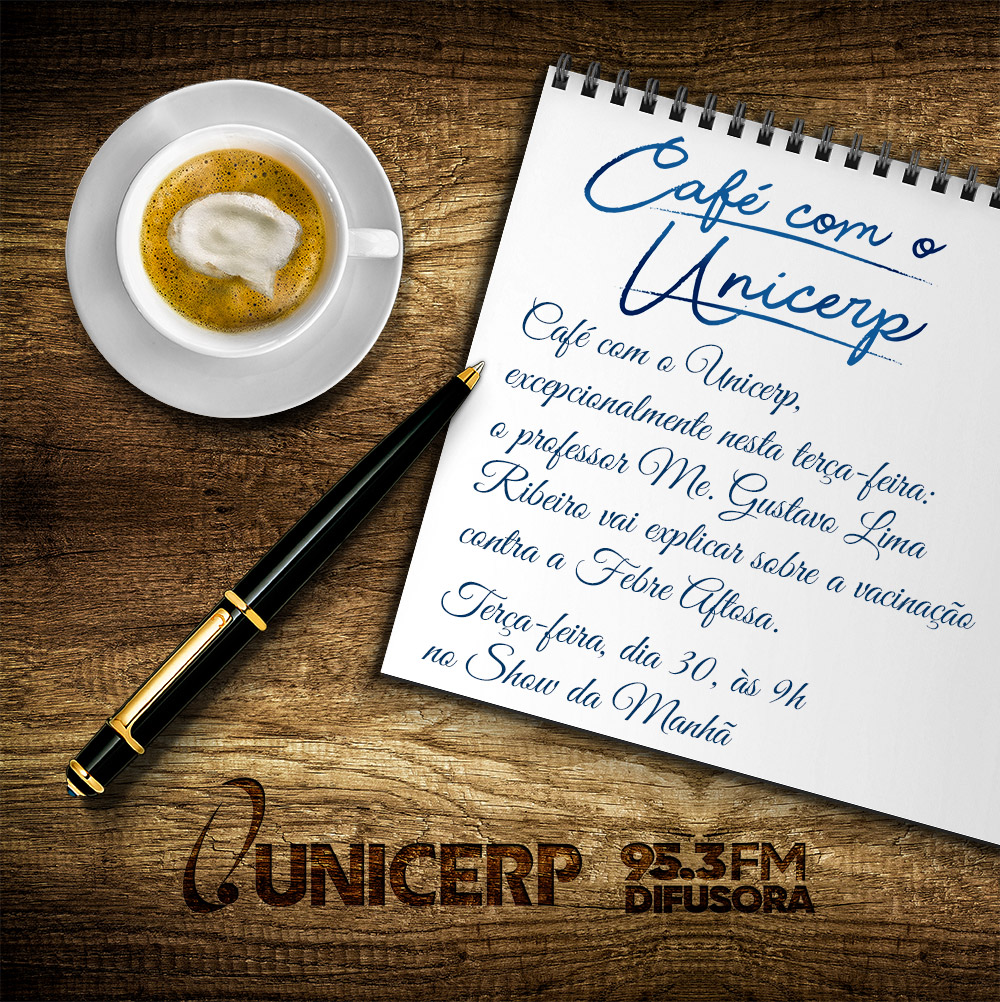 Café com o
Unicerp
Café com o Unicerp,
excepcionalmente nesta terça-feira:
o professor Me. Gustavo Lima
Ribeiro vai explicar sobre a vacinação
contra a Febre Aftosa.
Terça-feira, dia 30, às 9h
no Show da Manhã
UNICERP
95.3 FM
DIFUSORA